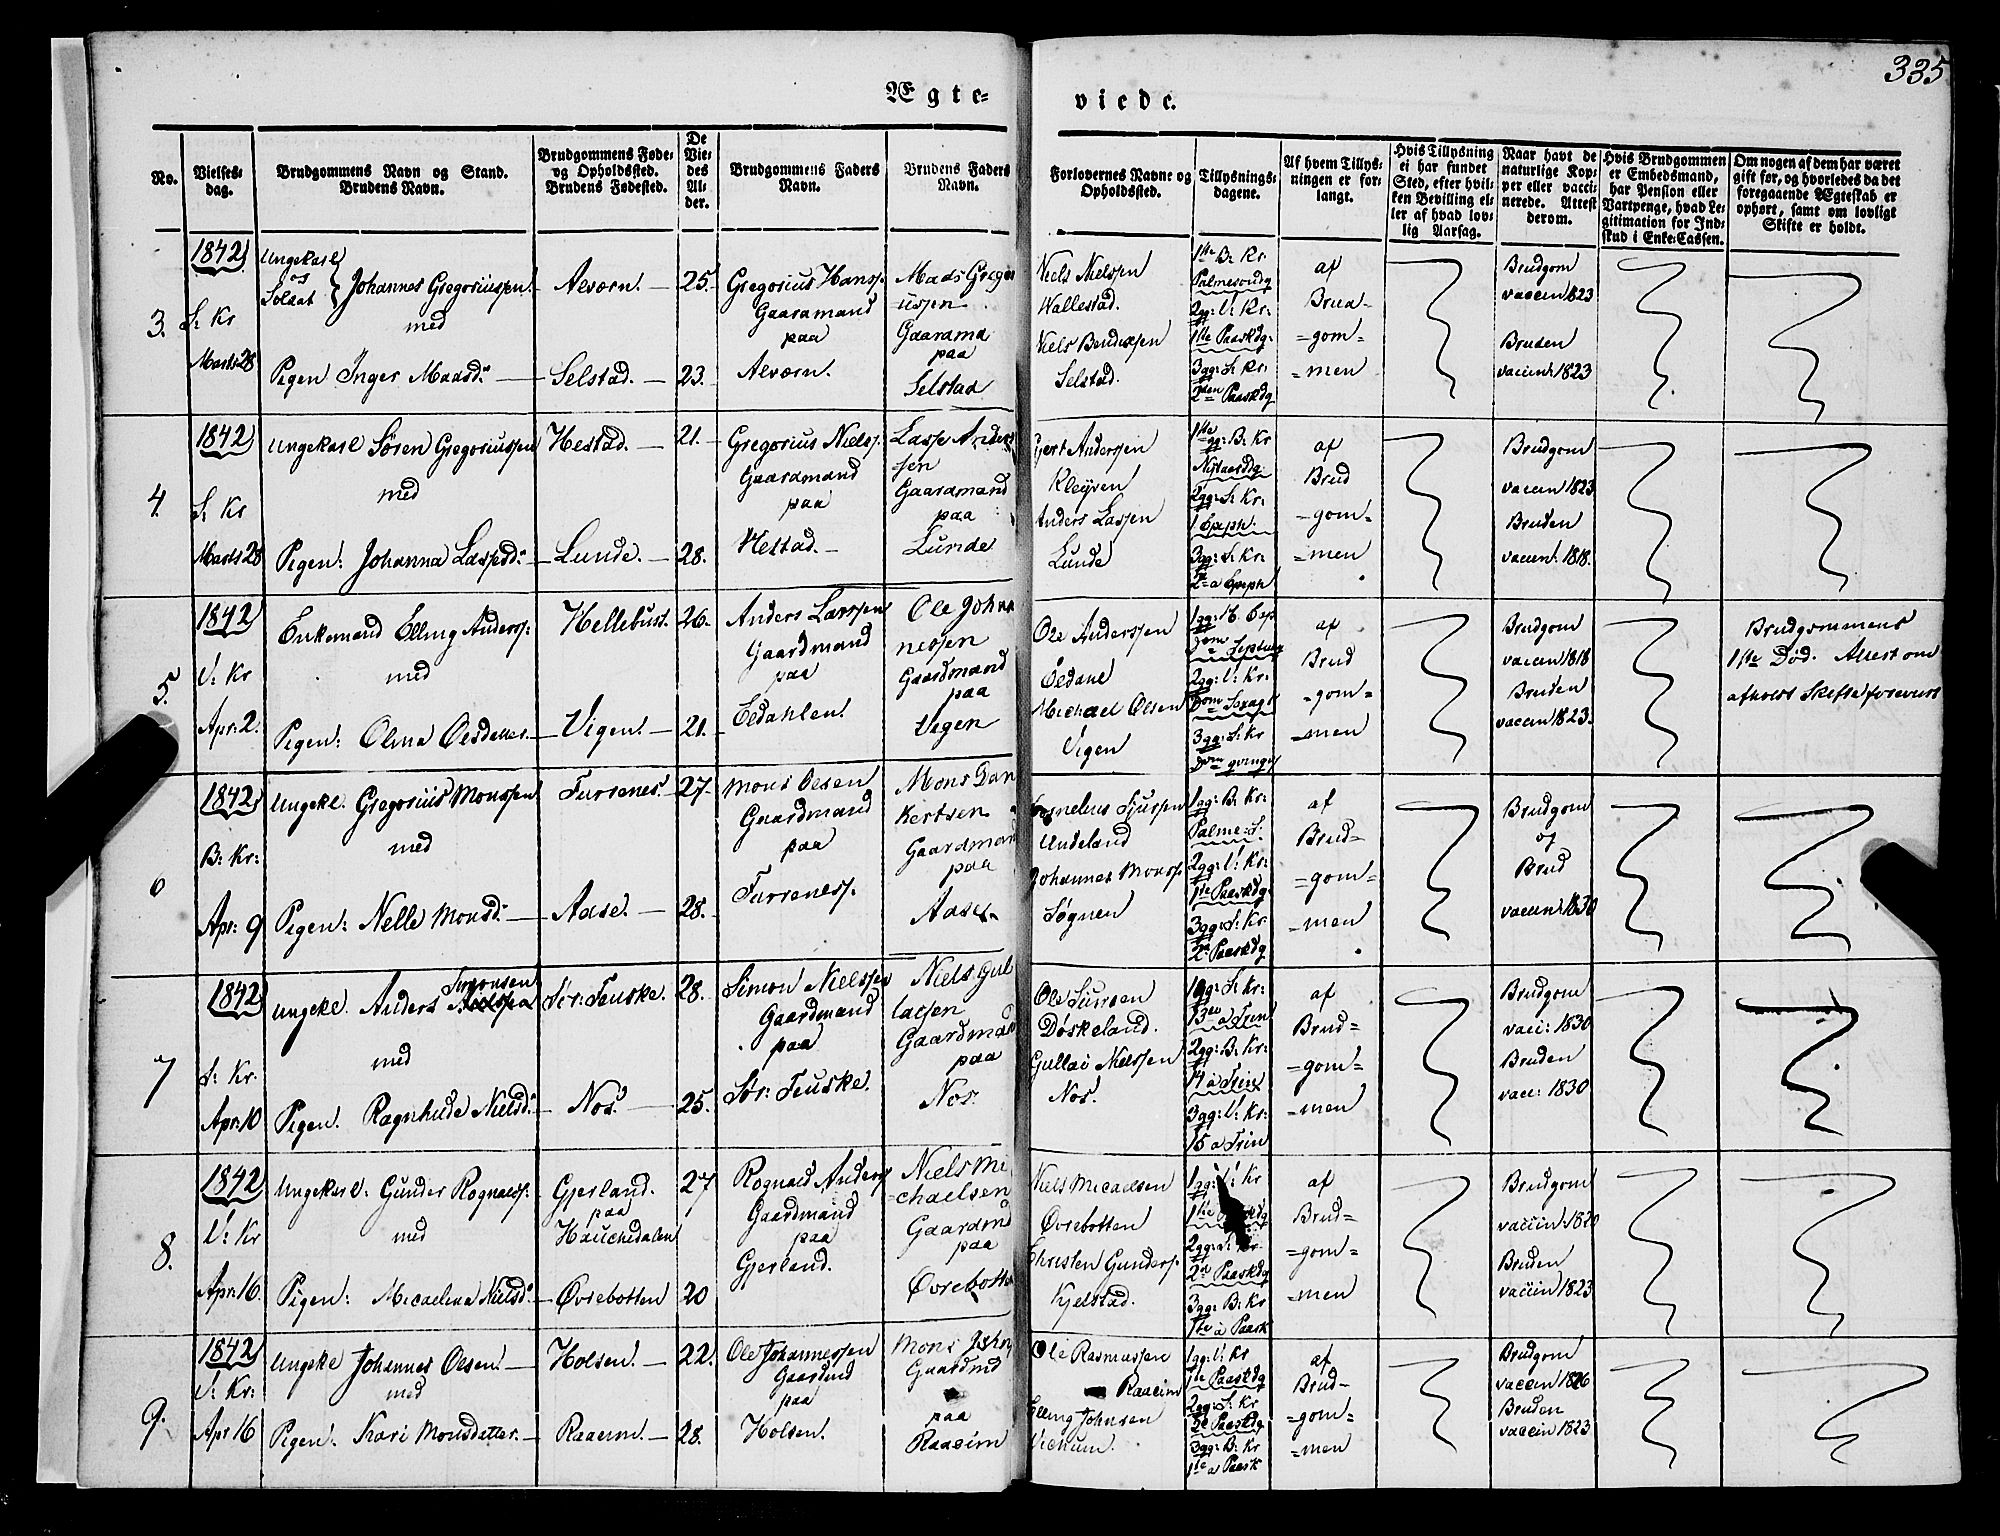 335
Ægte-
viede.
No.
Vielses-
dag.
Brudgommens Navn og Stand.
Brudens Navn.
Brudgommens Føde-
og Opholdssted.
Brudens Fødested.
De
Vie-
des
Al-
der.
Brudgommens Faders
Navn.
Brudens Faders
Navn.
Forlovernes Navne og
Opholdssted.
Tillysnings-
dagene.
Af hvem Tillys-
ningen er for-
langt.
Hvis Tillysning
ei har fundet
Sted, efter hvil-
ken Bevilling el-
ler af hvad lov-
lig Aarsag.
Naar havt de
naturlige Kop-
per eller vacci-
nerede. Attest
derom.
Hvis Brudgommen
er Embedsmand,
har Pension eller
Vartpenge, hvad Le-
gitimation for Ind-
skud i Enke-Cassen.
Om nogen af dem har været
gift før, og hvorledes da det
foregaaende Ægteskab er
ophørt, samt om lovligt
Skifte er holdt.
3.
1842
S: Kr
Marts 28
Ungekarl
og
Soldat
Johannes Gregoriussen.
med
Pigen Inger Madsd:
Alværn.
Selstad.
25.
23.
Gregorius Hanss.
Gaardmand
paa
Alværn.
Mads Gregor
iussen
Gaardma
paa
Selstad
Niels Nielssen
Wallestad.
Niels Bendixsen
Selstad.
1ste B: Kr
Palmesondg
2gg: V: Kr:
1ste Paaskdg:
3gg: S: Kr:
2den Paaskdg
af
Brud-
=gom=
=men
Brudgom
vaccin 1823
Bruden
vaccin: 1823
4.
1842
S: Kr
Marts 28
Ungekarl Søren Gregoriussen
med
Pigen: Johanna Lassed:
Hestad.
Lunde.
21.
28.
Gregorius Nielss.
Gaardmand
paa
Hestad.
Lasse Anders
sen
Gaardmand
paa
Lunde
Gert Anderssen
Kleyven
Anders Lassen
Lunde
1ste gg: B: Kr
Nytaarsdg
2gg: S: Kr:
1 Epeph:
3gg: S: Kr:
2 a Epeph
af
Brud
=gom=
=men
Brudgom
vaccin 1823
Bruden
vaccin: 1818.
5.
1842
V: Kr
Apr: 2.
Enkemand Elling Anderss:
med
Pigen: Olina Olsdatter.
Hellebust.
Vigen.
26.
21.
Anders Larssen
Gaardmand
paa
Eldahlen.
Ole Joha
nessen
Gaardmand
paa
Vigen
Ole Anderssen
Eldahl
Michael Olsen
Vigen
2gg: V: Kr:
3gg: S: Kr
af
Brud
=gom=
=men
Brudgom
vaccin 1818
Bruden
vaccin 1823.
Brudgommens
1ste Død. Attest om
afholdt Skifte forevist
6
1842
B: Kr:
Apr: 9
Ungekl. Gregorius Monssen
med
Pigen: Nelle Monsd:
Furrenes.
Aase.
27.
28.
Mons Olsen
Gaardmand
paa
Furrenes.
Mons Dan
kertsen
Gaardman
paa
Aase
Cornelius Sjurssen
Undeland
Johannes Monss.
Søgnen
1gg: B: Kr:
Palme: S:
2gg: V: Kr:
1ste Paaskdg.
3gg: S: Kr
2 Paaskdg
af
Brud=
=gom=
=men
Brudgom
og
Brud
vaccin: 1830
7
1842
S: Kr.
Apr: 10
Ungekl. Anders Simonsen
med
Pigen. Ragnhilde Nielsd:
Sør: Feuske.
Nos.
28.
25.
Simon Nielssen
Gaardmand
paa
Sør: Feuske.
Niels Gul
lacsen
Gaardmand
paa
Nos.
Ole Sunsen
Døskeland.
Gullac Nielssen
Nos.
1gg: S: Kr:
13 a Trin
2gg: B: Kr:
14 a Trin
3gg: V: Kr:
15 a Trin
af
Brud=
=gom=
=men
Brudgom
vacc: 1830
Bruden
vacc: 1830
8.
1842
V: Kr
Apr: 16.
Ungekarl: Gunder Rognalss.
med
Pigen: Micaelina Nielsd:
Gjerland.
paa
Hauchedalen
Øvrebotten
27
20
Rognald Anderss
Gaardmand
paa
Gjerland.
Niels Mi
=chaelsen
Gaardmd
paa
Øvrebotten
Niels Micaelsen
Øvrebotten
Christen Gunders.
Kjelstad.
1gg: V: Kr
1ste Paaskdg
2gg: S: Kr.
2n Paaskdg
3gg: B: Kr
1ste a Paask
af
Brud=
=gom=
=men
Brudgom
vaccin: 1820
Bruden
vaccin 1823
9.
1842
V: Kr:
Apr 16
Ungekl Johannes Olsen.
med
Pigen. Kari Monsdatter.
Holsen.
Raaeim.
22.
28.
Ole Johannessen
Gaardmd
paa
Holsen.
Mons John
Gaardmd
paa
Raaeim
Ole Rasmussen
Raaeim
Elling Johnsen
Viehum.
1gg: V: Kr
1ste Paaskdg
2gg: S: Kr
2e Paaskdg
3gg: B: Kr
1ste a Paask
af
Brud-
=gom=
=men
Brudgom
vaccin 1826
Bruden
vaccin 1823